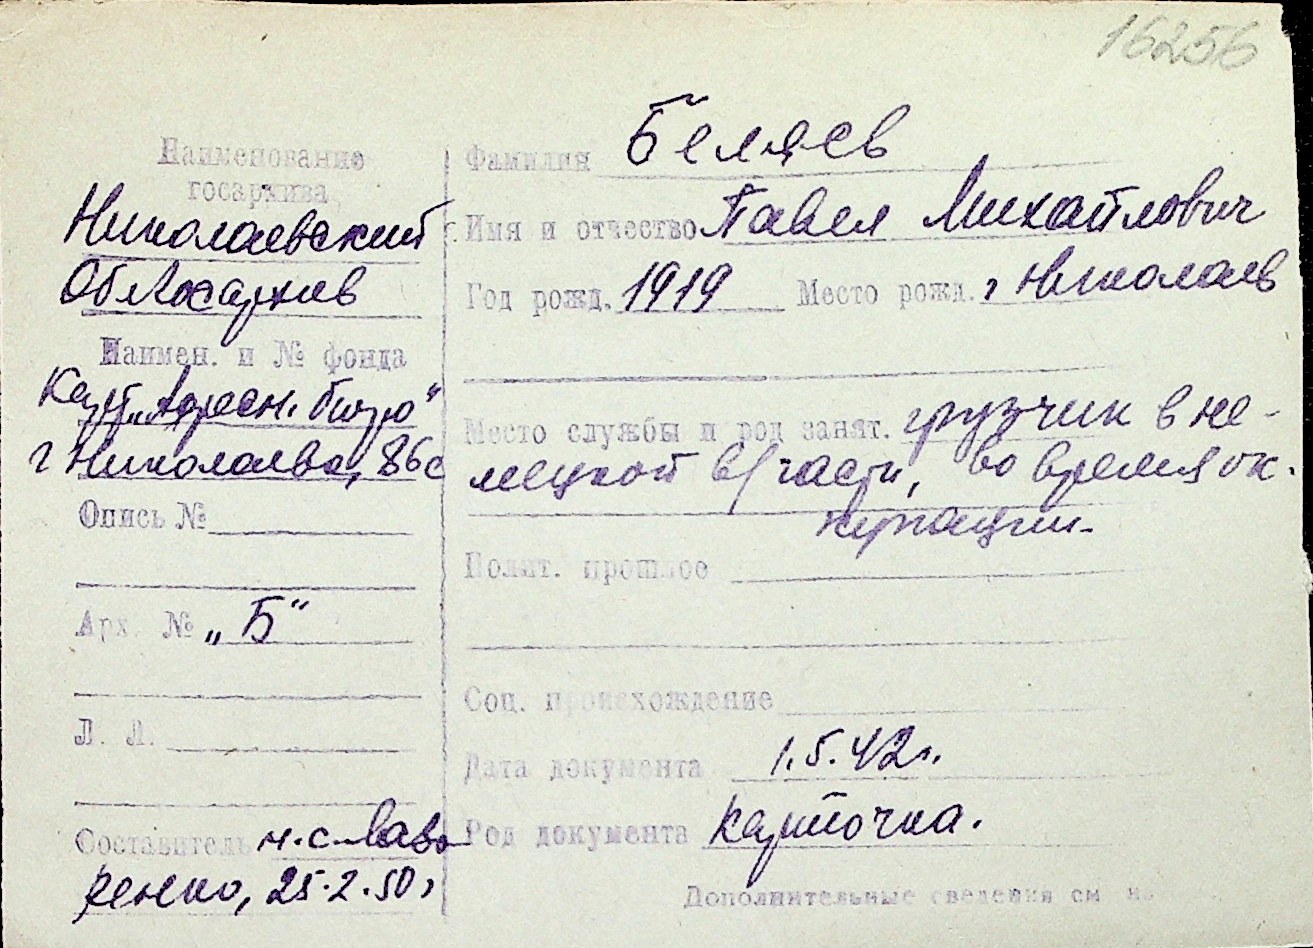 16256
Наименование
госархива
Николаевский
Облгосархив
Наимен. и № фонда
Карт. „Адресн. бюро“
г Николаева, 86с
Опись №
Арх. № „Б“
Л. Л.
Составитель н.с. Лавр
ренко, 25.2.50г
Фамилия Беляев
Имя и отчество Павел Михайлович
Год рожд. 1919 Место рожд. г Николаев
Место службы и род занят. грузчик в не-
мецкой в/части, во время ок-
купации.
Полит. прошлое
Соц. происхождение
Дата документа 1.5.42г.
Род документа карточка.
Дополнительные сведения см